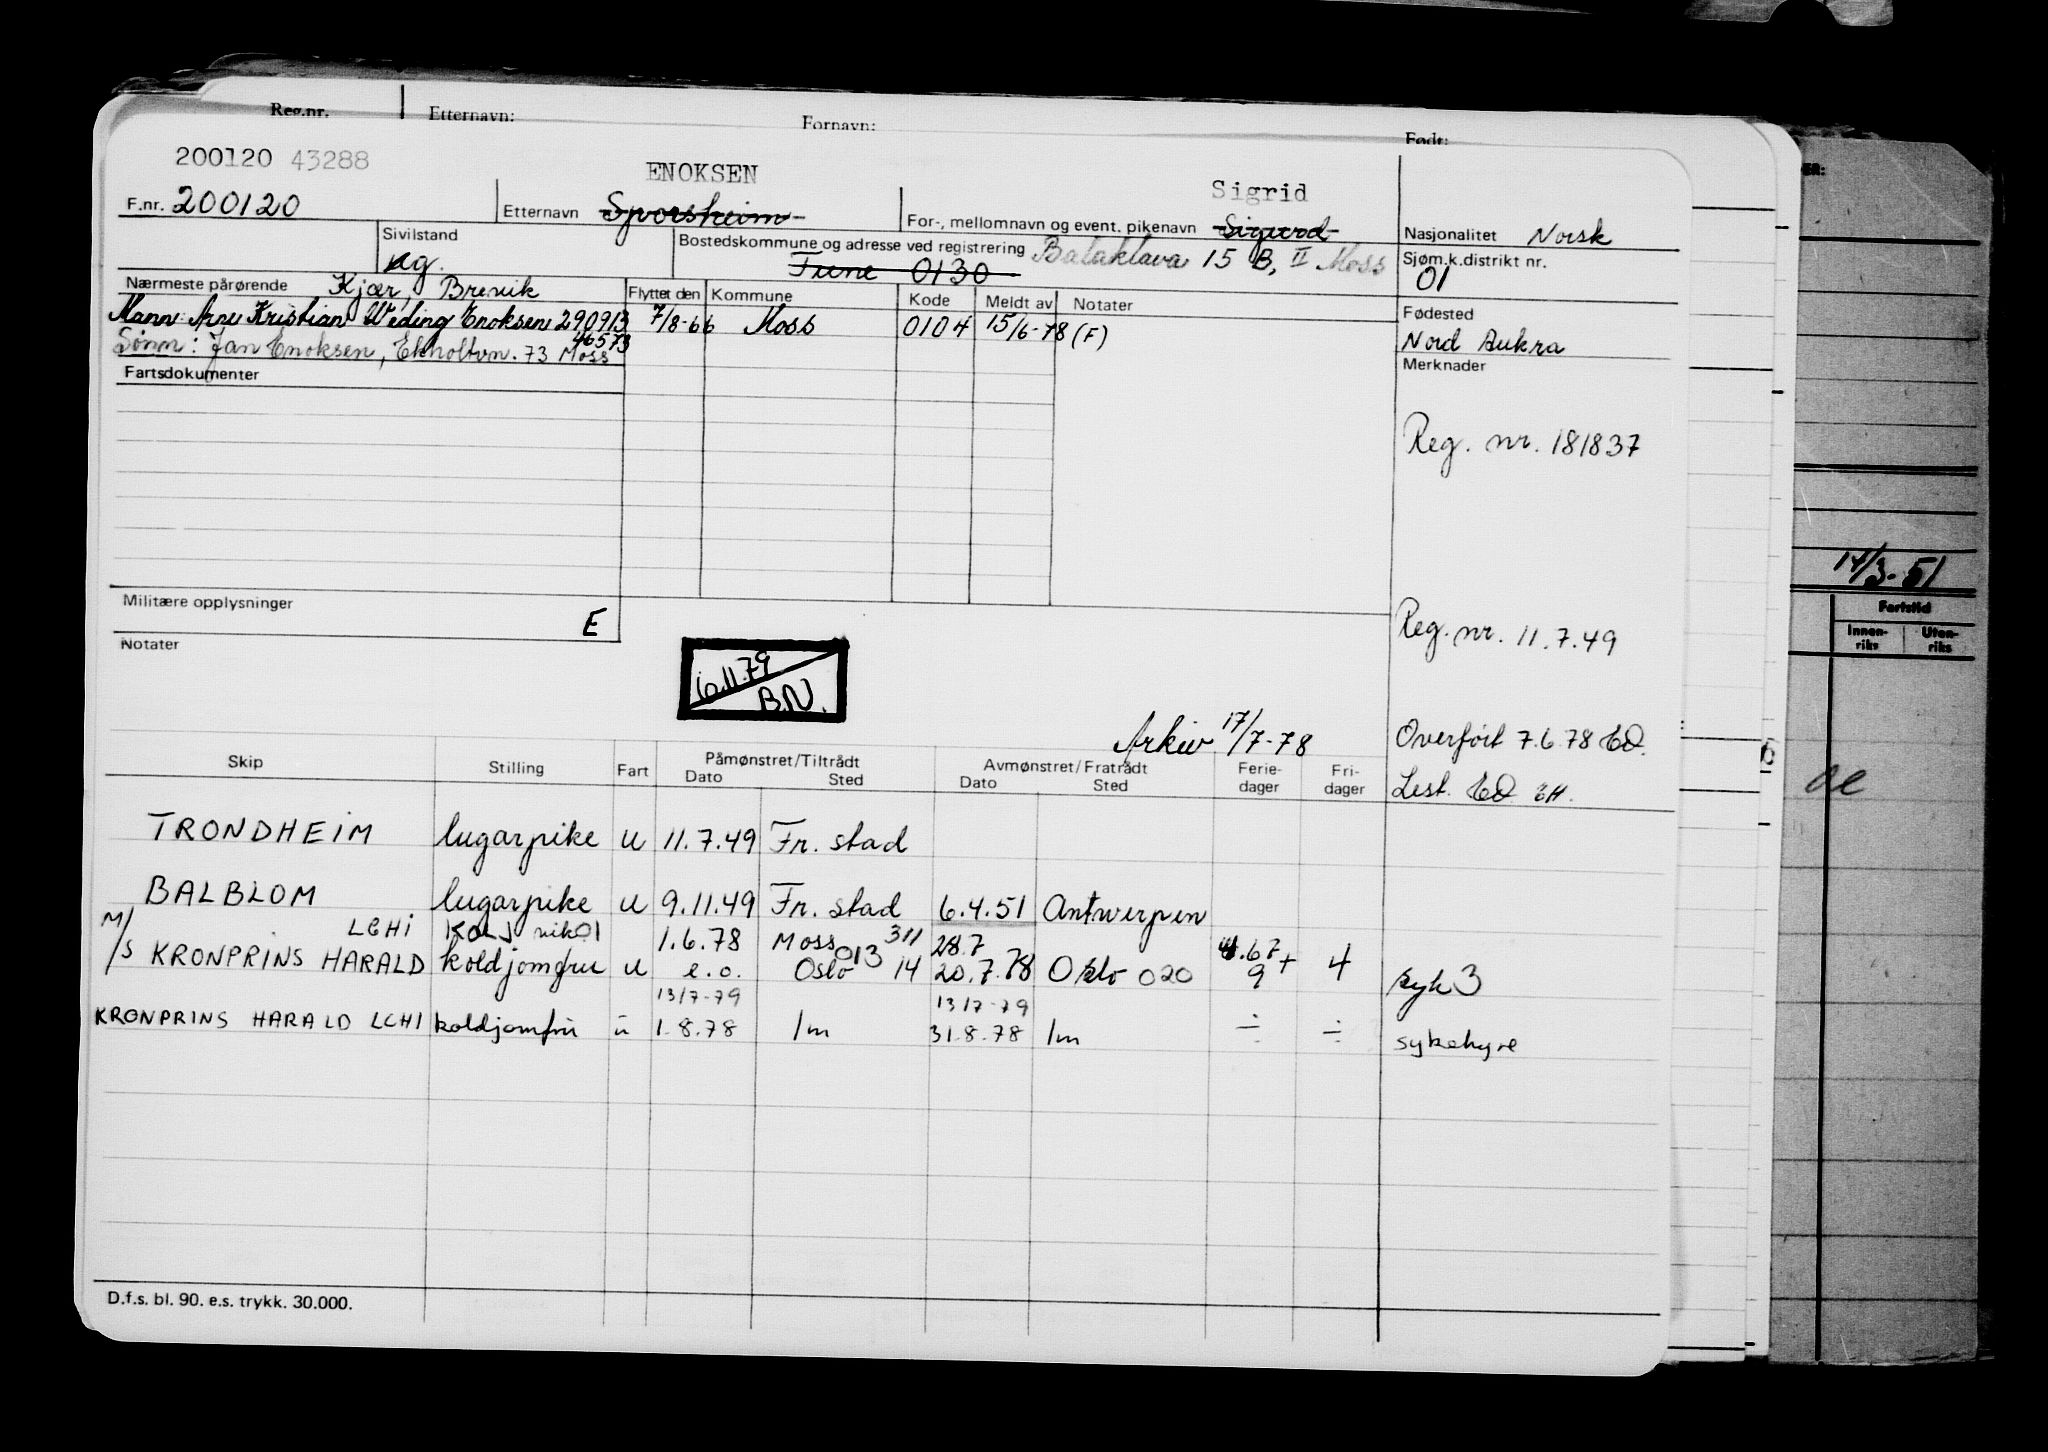 Reg.nr. Etternavn: Fornavn: Født:
200120 43288 ENOKSEN Sigrid
F.nr. 200120 Etternavn Sporsheim For-, mellomnavn og event. pikenavn Sigurd Nasjonalitet Norsk
Sivilstand ug. Bostedskommune og adresse ved registrering Tune 0130 Balaklava 15 B, II Moss Sjøm.k.distrikt nr. 01
Nærmeste pårørende Kjær, Brevik Flyttet den Kommune Kode Meldt av Notater Fødested
Mann: Arne Kristian Weding Enoksen 290913 46573 7/8-66 Moss 0104 15/6-78 (F) Nord Aukra
Sønn: Jan Enoksen, Ekholtvn. 73 Moss
Fartsdokumenter Merknader
Reg. nr. 181837
14/3-51
Militære opplysninger E
Reg. nr. 11.7.49
Fartstid
Innen-riks Uten-riks
Notater
6.11.79
B.N.
Arkiv 17/7-78 Overført 7.6.78 ED.
Skip Stilling Fart Påmønstret/Tiltrådt Avmønstret/Fratrådt Ferie-dager Fri-dager
Dato Sted Dato Sted
Lest. ED EH.
TRONDHEIM lugarpike u 11.7.49 Fr. stad
BALBLOM lugarpike u 9.11.49 Fr. stad 6.4.51 Antwerpen
LCHI KOLJ 1.6.78 Moss 311 28.7
M/S KRONPRINS HARALD koldjomfru u e.o. Oslo 013 14 20.7.78 Oslo 020 9 + 4 syk 3
13/7-79 13/7-79
KRONPRINS HARALD LCHI koldjomfru u 1.8.78 1m 31.8.78 1m ÷ ÷ sykehyre
D.f.s. bl. 90. e.s. trykk. 30.000.